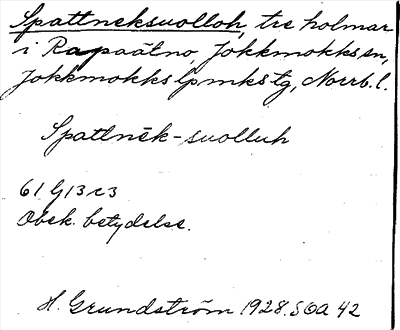 Spattneksuolloh, tre holmar
i Rapaätno, Jokkmokks sn,
Jokkmokks lpmkstg, Norrb. l.
Spattnēk-suolluh
61 G 13 c 3
Obek. betydelse.
H. Grundström 1928. SOA 42